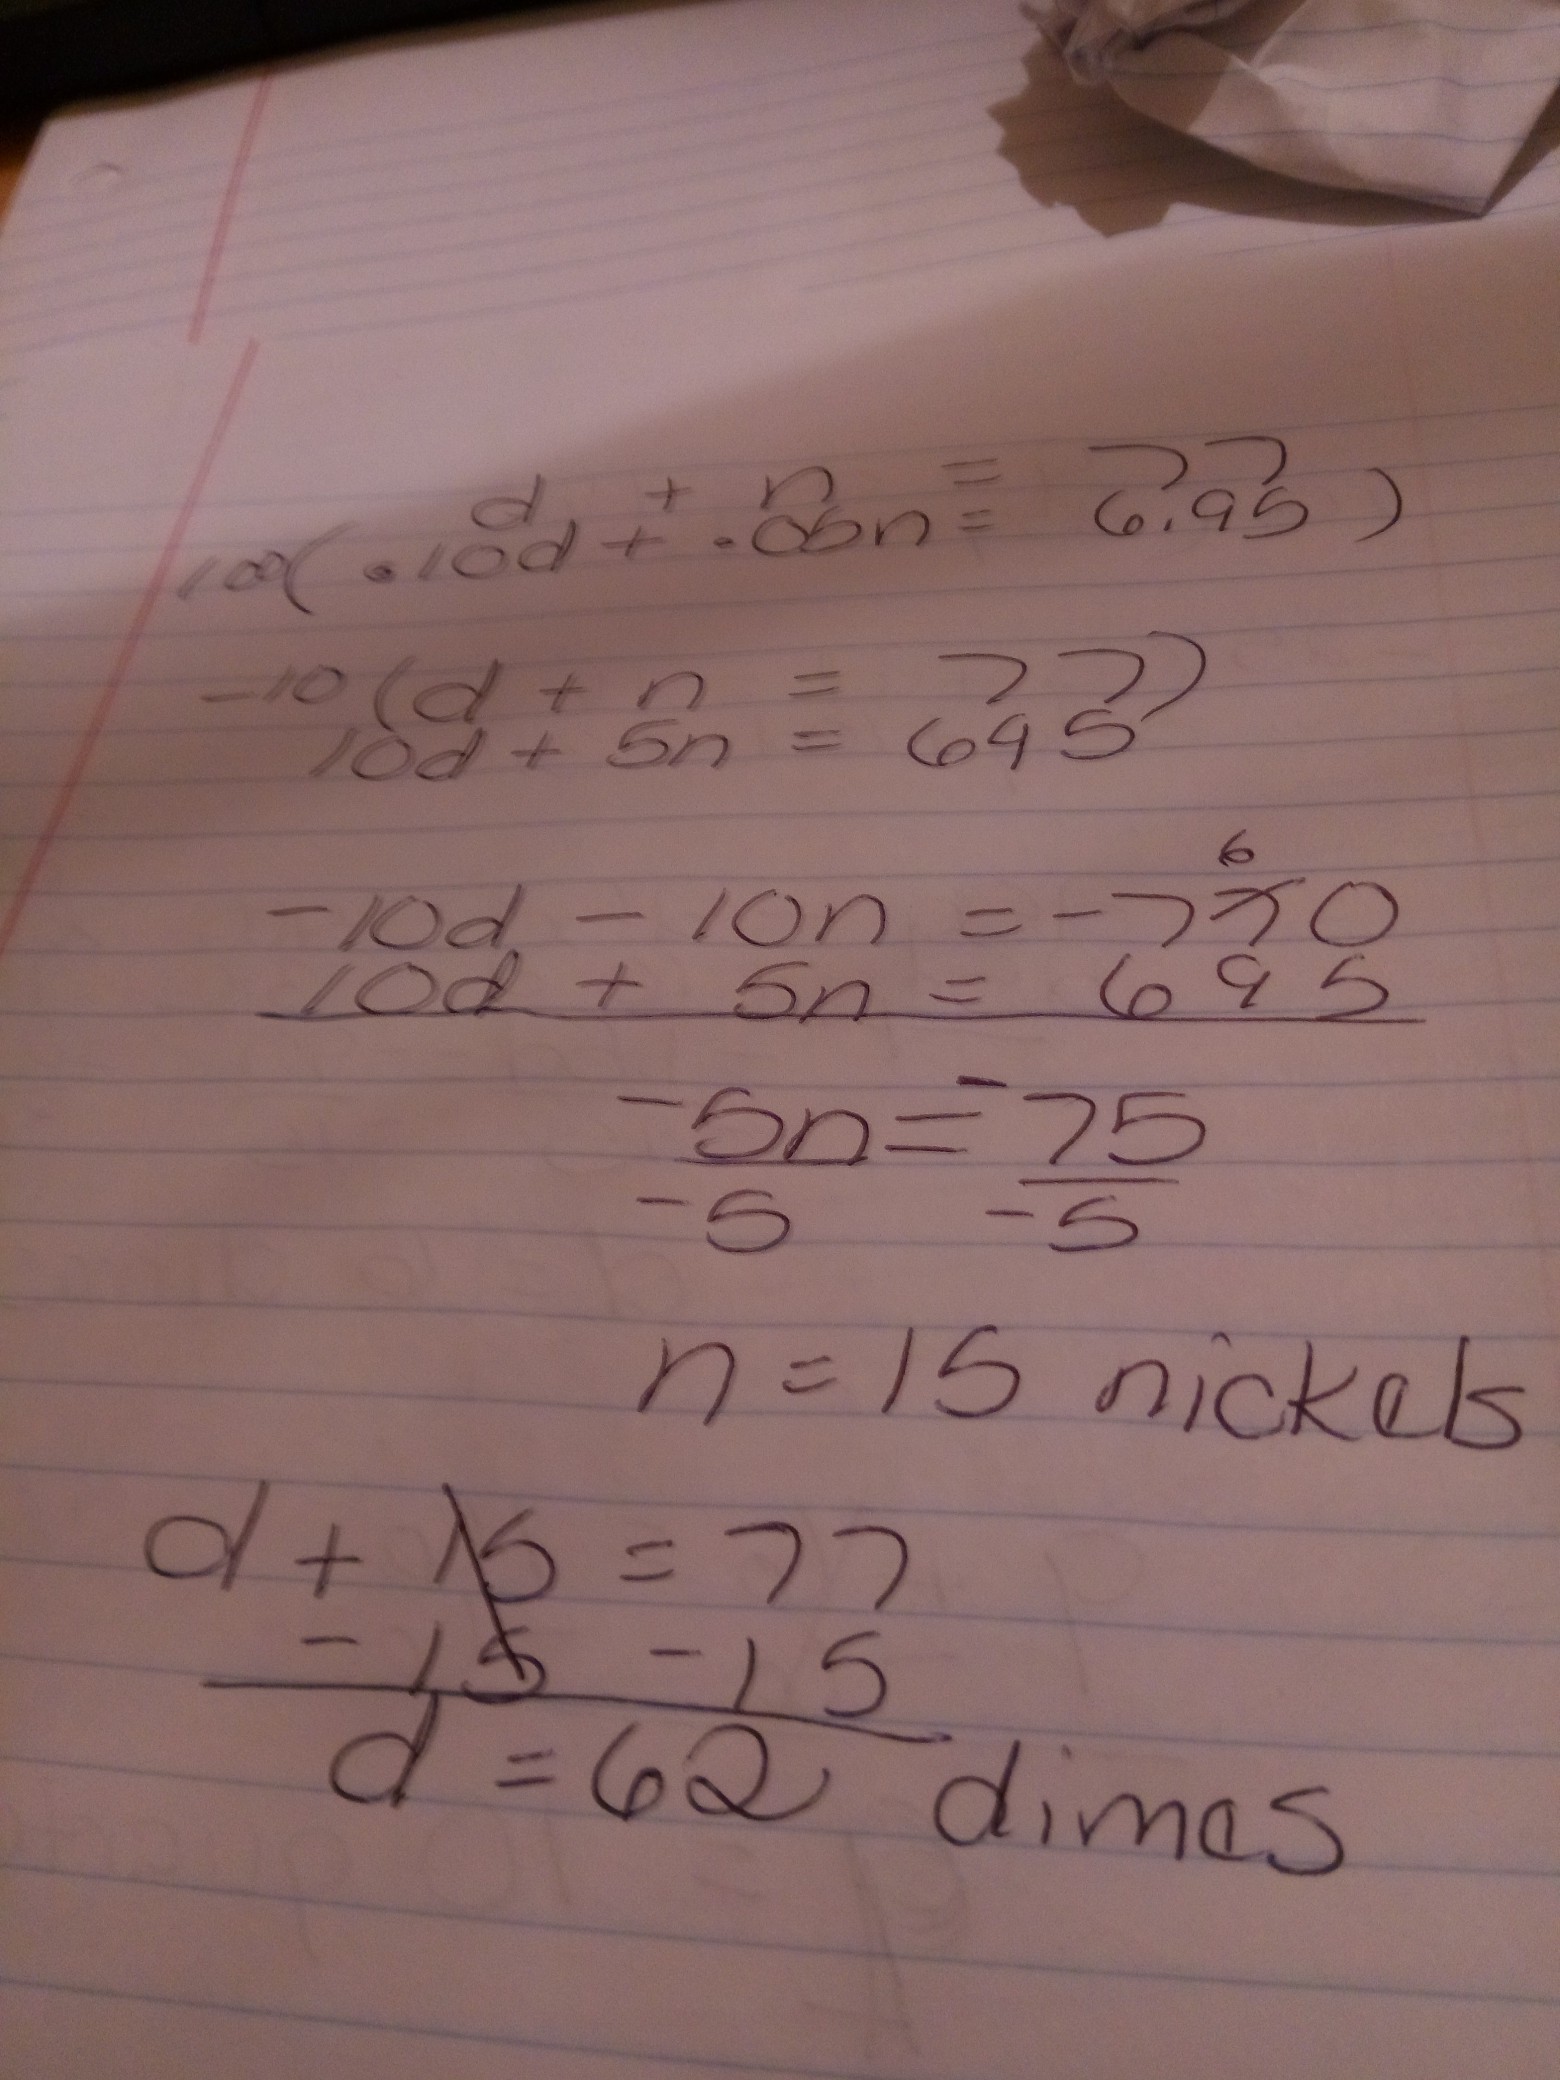 d + n = 77
100(.10d + .05n = 6.95)
-10(d + n = 77)
10d + 5n = 695
6
-10d - 10n = -770
10d + 5n = 695
-5n = -75
-5 -5
n = 15 nickels
d + 15 = 77
-15 -15
d = 62 dimes